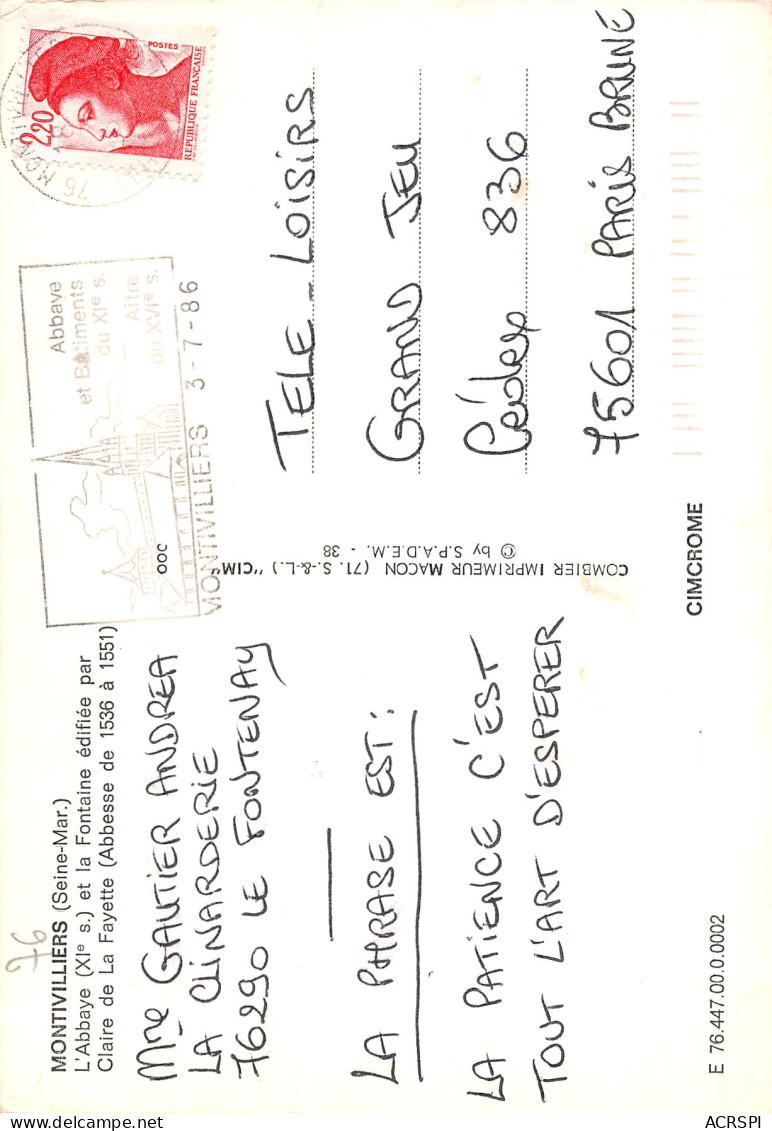 MONTIVILLIERS (Seine-Mar.)
L'Abbaye (XIe s.) et la Fontaine édifiée par
Claire de La Fayette (Abbesse de 1536 à 1551)
76
Mme GAUTIER ANDREA
LA CLINARDERIE
76290 LE FONTENAY
LA PHRASE EST:
LA PATIENCE C'EST
TOUT L'ART D'ESPERER
E 76.447.00.0.0002
COMBIER IMPRIMEUR MACON (71. S.-&-L.) "CIM"
© by S.P.A.D.E.M. - 38
CIMCROME
Abbaye
et Bâtiments
du XIe s.
Aitre
du XVIe s.
MONTIVILLIERS 3-7-86
POSTES
2,20
REPUBLIQUE FRANÇAISE
TELE-LOISIRS
GRAND JEU
Cédex 836
75601 PARIS BRUNE
ACRSPI